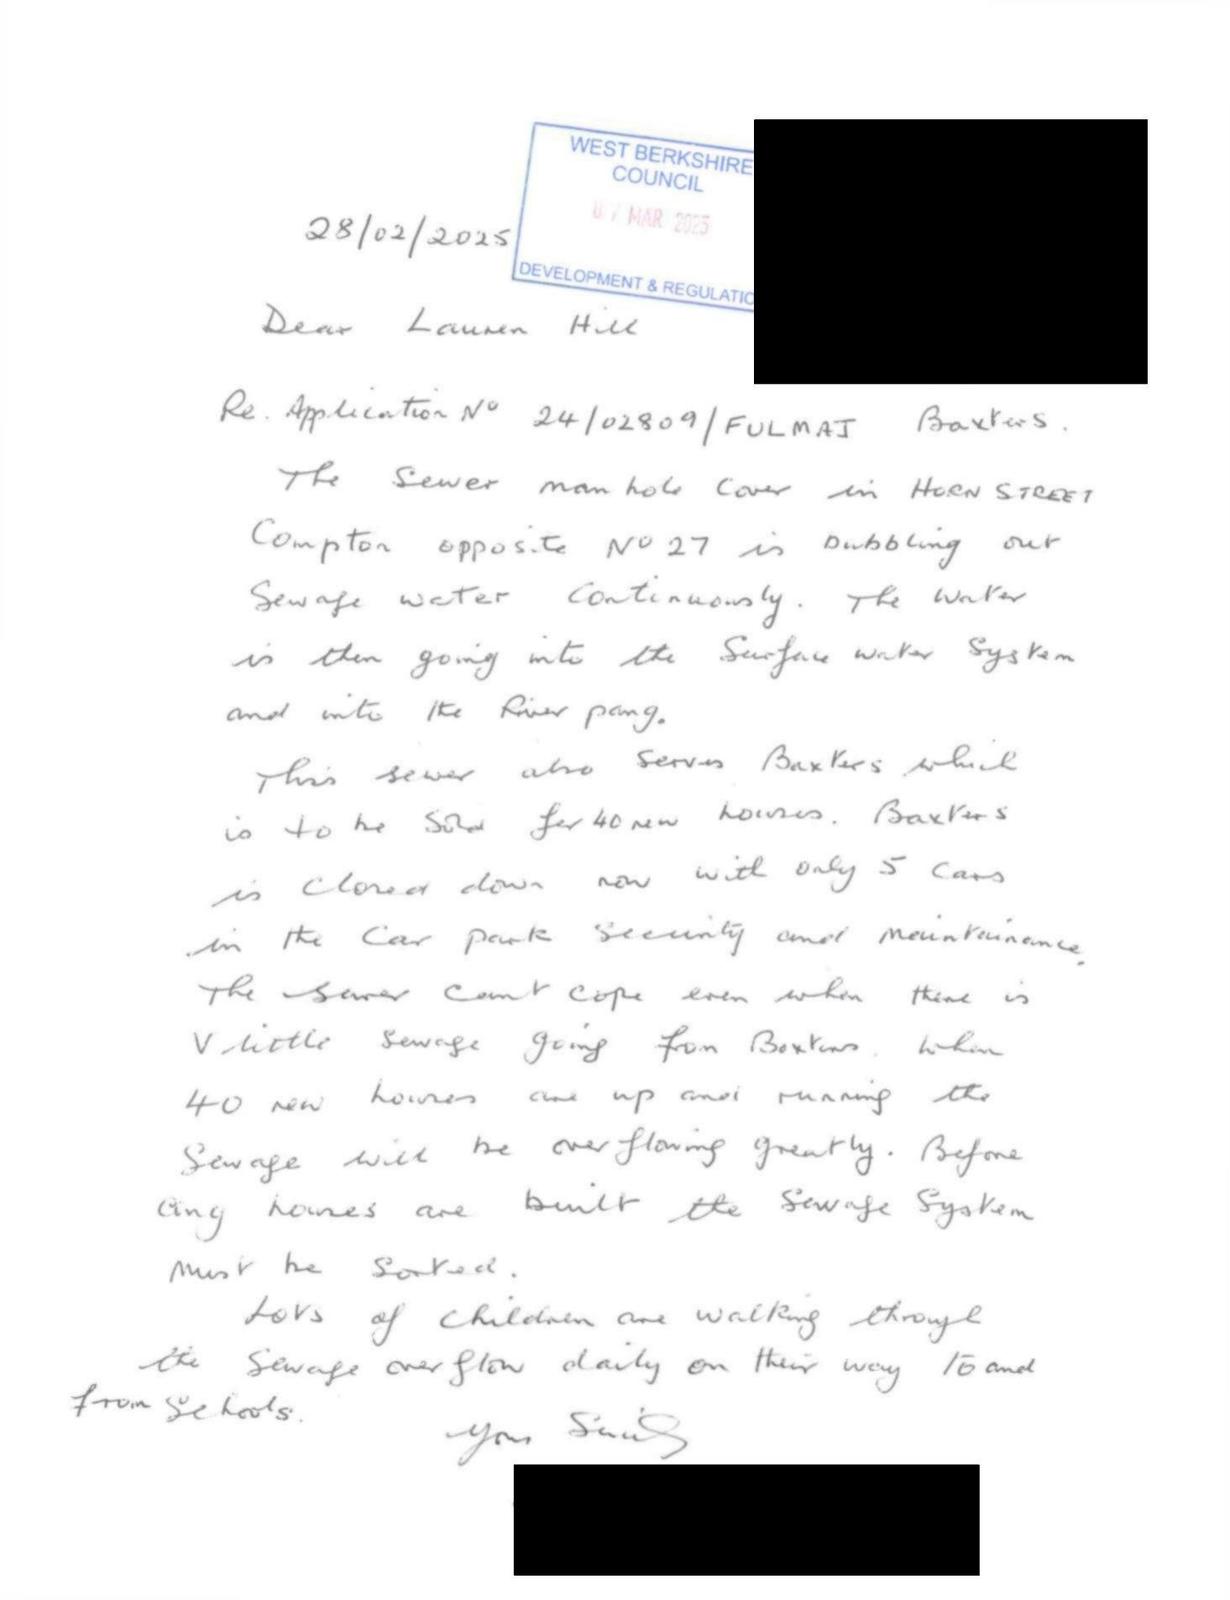 WEST BERKSHIRE
COUNCIL
07 MAR 2025
DEVELOPMENT & REGULATIO
28/02/2025
Dear Lauren Hill
Re. Application No 24/02809/FULMAJ Baxters.
The Sewer man hole Cover in HORN STREET
Compton opposite No 27 is bubbling out
Sewage water Continuously. The water
is then going into the Surface water System
and into the River pang.
This sewer also serves Baxters which
is to be Sold for 40 new houses. Baxters
is Closed down now with only 5 Cars
in the Car park Security and Maintainance.
The sewer Can't Cope even when there is
V little Sewage going from Baxters. When
40 new houses are up and running the
Sewage will be over flowing greatly. Before
any houses are built the Sewage System
Must be Sorted.
Lots of Children are walking through
the Sewage over flow daily on their way to and
from Schools.
Yours Sincerely